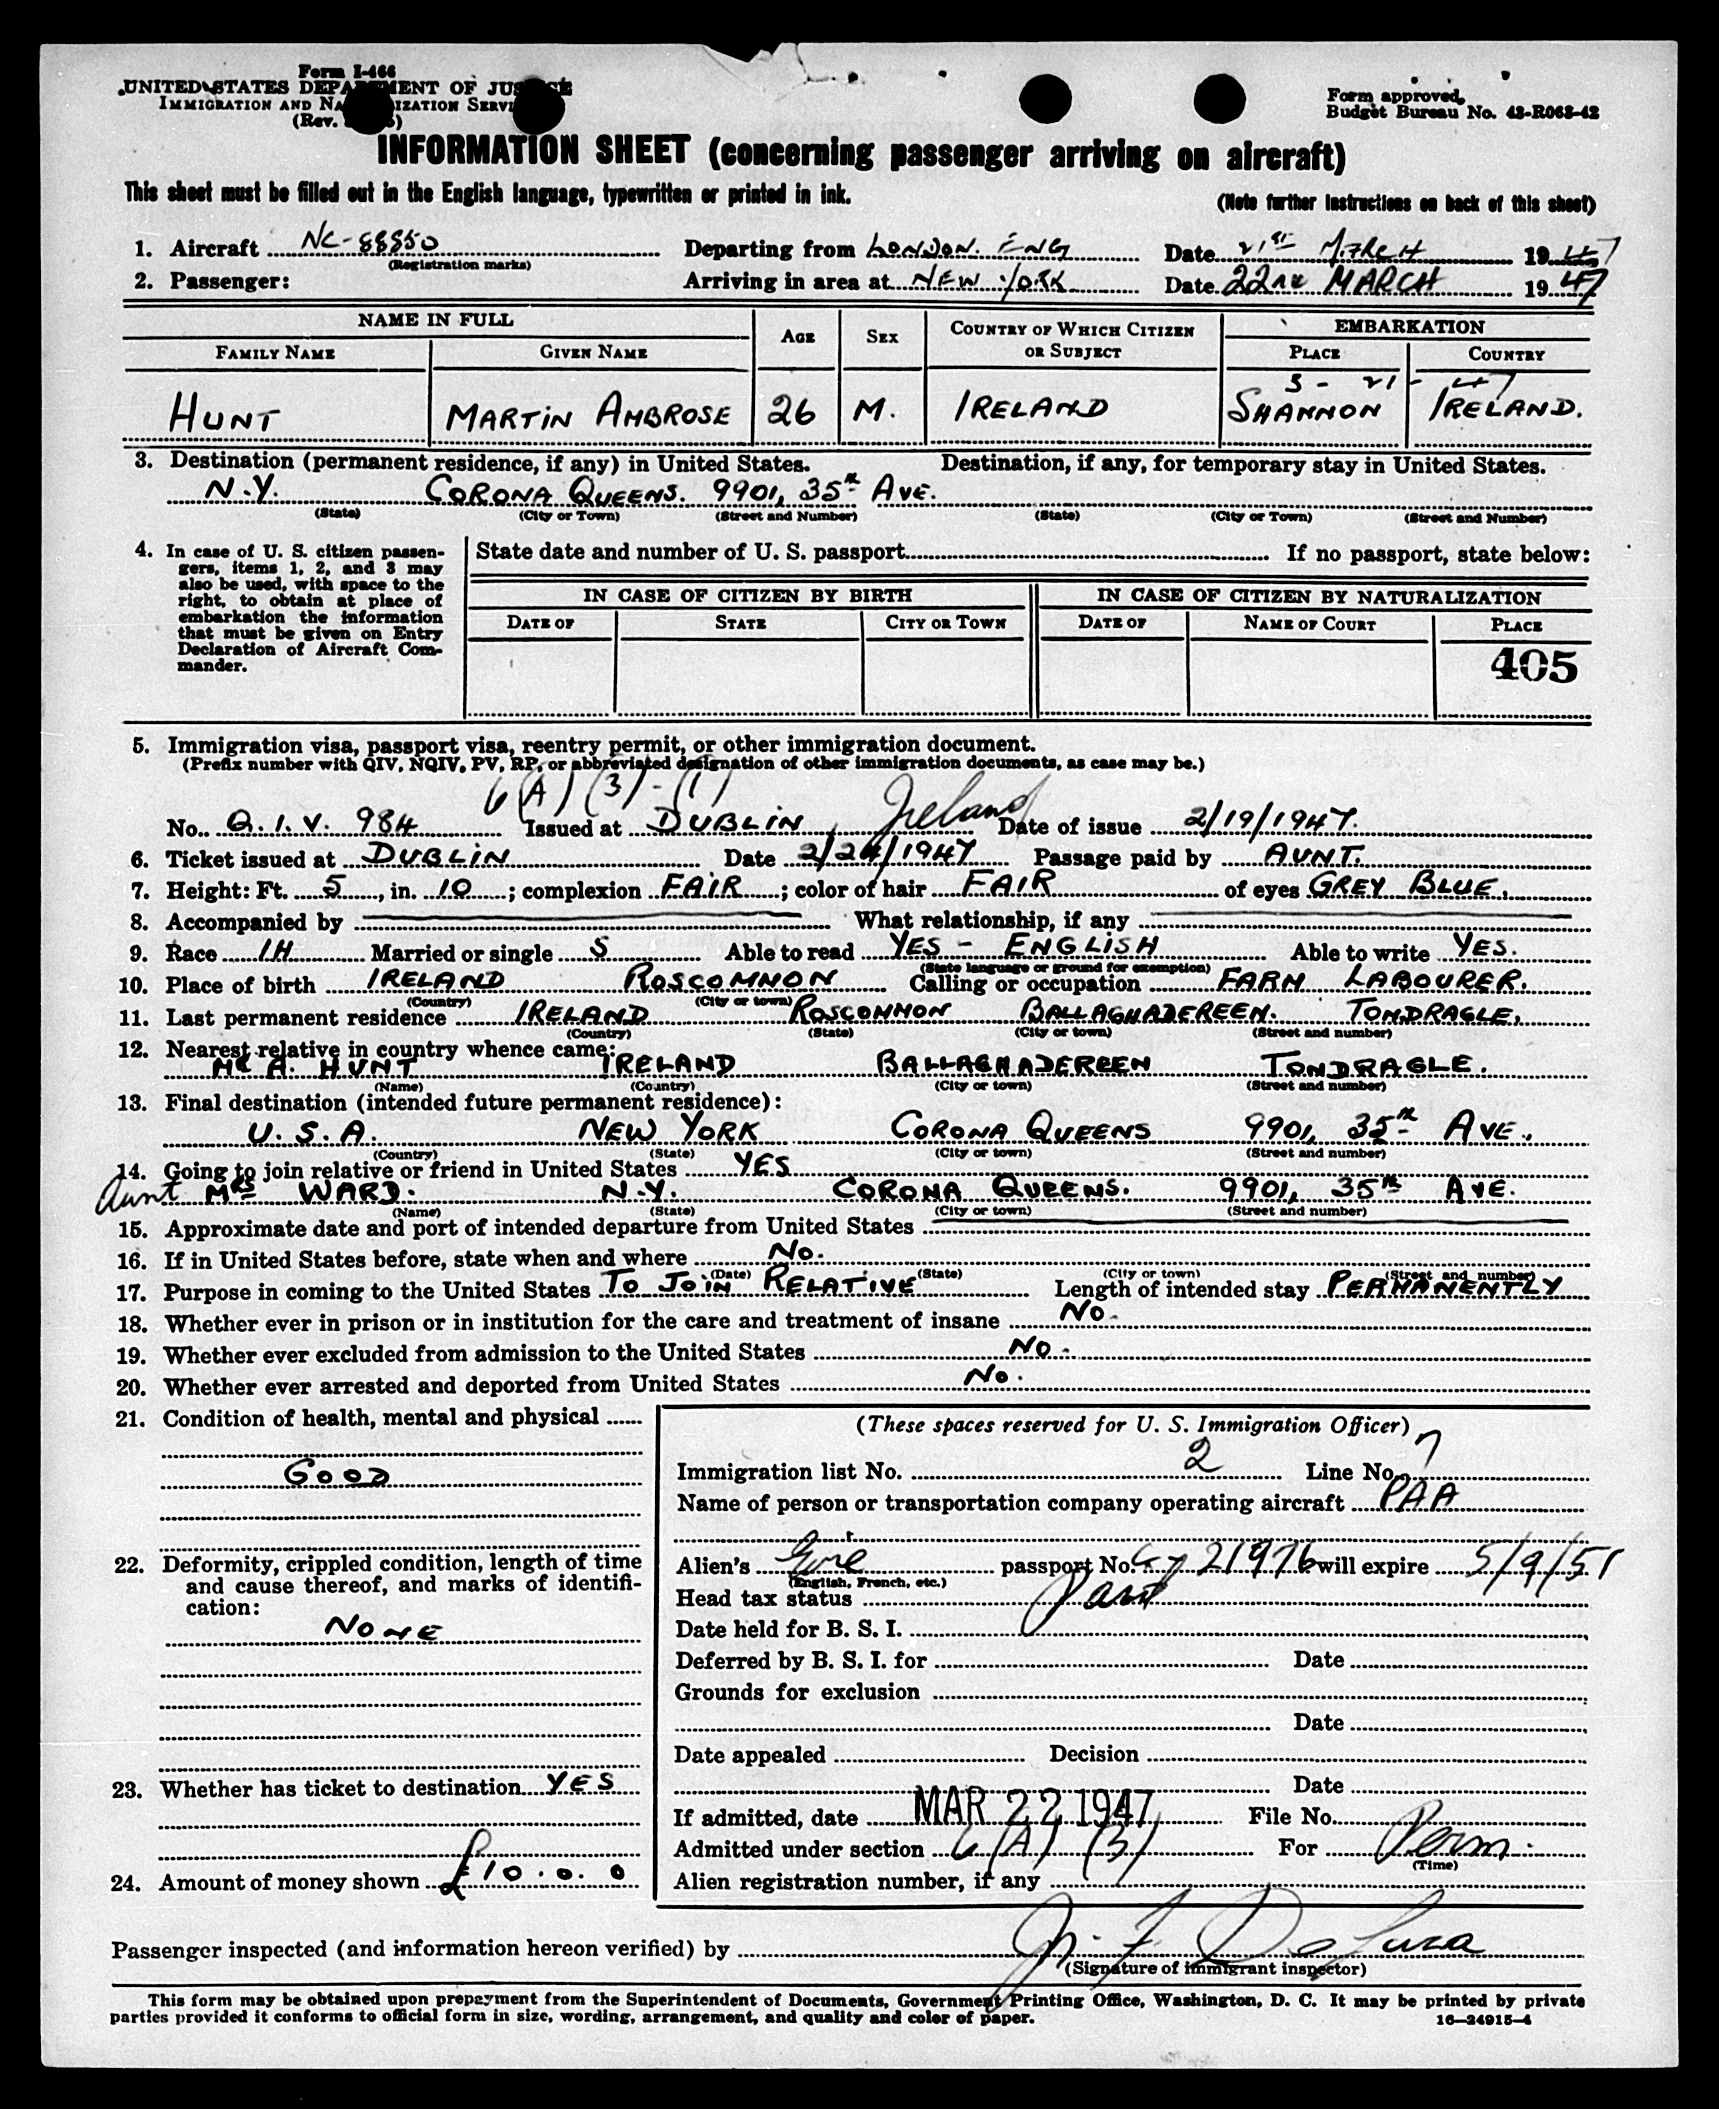 Form I-466
UNITED STATES DEPARTMENT OF JUSTICE
IMMIGRATION AND NATURALIZATION SERVICE
(Rev.
Form approved.
Budget Bureau No. 43-R063-42
INFORMATION SHEET (concerning passenger arriving on aircraft)
This sheet must be filled out in the English language, typewritten or printed in ink.
(Note further instructions on back of this sheet)
1. Aircraft NC-88850 Departing from LONDON. ENG Date 21st MARCH 1947
(Registration marks)
2. Passenger: Arriving in area at NEW YORK Date 22nd MARCH 1947
NAME IN FULL AGE SEX COUNTRY OF WHICH CITIZEN OR SUBJECT EMBARKATION
FAMILY NAME GIVEN NAME PLACE COUNTRY
3 - 21 - 47
HUNT MARTIN AMBROSE 26 M. IRELAND SHANNON IRELAND.
3. Destination (permanent residence, if any) in United States. Destination, if any, for temporary stay in United States.
N.Y. CORONA QUEENS. 9901, 35th AVE.
(State) (City or Town) (Street and Number) (State) (City or Town) (Street and Number)
4. In case of U. S. citizen passengers, items 1, 2, and 3 may also be used, with space to the right, to obtain at place of embarkation the information that must be given on Entry Declaration of Aircraft Commander.
State date and number of U. S. passport If no passport, state below:
IN CASE OF CITIZEN BY BIRTH IN CASE OF CITIZEN BY NATURALIZATION
DATE OF STATE CITY OR TOWN DATE OF NAME OF COURT PLACE
405
5. Immigration visa, passport visa, reentry permit, or other immigration document.
(Prefix number with QIV, NQIV, PV, RP, or abbreviated designation of other immigration documents, as case may be.)
6(A)(3)-(1)
No. Q.I.V. 984 Issued at DUBLIN, Ireland Date of issue 2/19/1947.
6. Ticket issued at DUBLIN Date 2/24/1947 Passage paid by AUNT.
7. Height: Ft. 5, in. 10; complexion FAIR; color of hair FAIR of eyes GREY BLUE.
8. Accompanied by What relationship, if any
9. Race IH Married or single S Able to read YES - ENGLISH Able to write YES.
(State language or ground for exemption)
10. Place of birth IRELAND ROSCOMMON Calling or occupation FARM LABOURER.
(Country) (City or town)
11. Last permanent residence IRELAND ROSCOMMON BALLAGHADEREEN. TONDRAGLE.
(Country) (State) (City or town) (Street and number)
12. Nearest relative in country whence came:
Mr A. HUNT IRELAND BALLAGHADEREEN TONDRAGLE.
(Name) (Country) (City or town) (Street and number)
13. Final destination (intended future permanent residence):
U.S.A. NEW YORK CORONA QUEENS 9901, 35th AVE.
(Country) (State) (City or town) (Street and number)
14. Going to join relative or friend in United States YES
Aunt Mrs WARD. N.Y. CORONA QUEENS. 9901, 35th AVE.
(Name) (State) (City or town) (Street and number)
15. Approximate date and port of intended departure from United States
16. If in United States before, state when and where No.
(Date) (State) (City or town) (Street and number)
17. Purpose in coming to the United States TO JOIN RELATIVE Length of intended stay PERMANENTLY
18. Whether ever in prison or in institution for the care and treatment of insane No.
19. Whether ever excluded from admission to the United States No.
20. Whether ever arrested and deported from United States No.
21. Condition of health, mental and physical
GOOD
22. Deformity, crippled condition, length of time and cause thereof, and marks of identification:
NONE
23. Whether has ticket to destination YES
24. Amount of money shown £10.0.0
(These spaces reserved for U. S. Immigration Officer)
Immigration list No. 2 Line No. 7
Name of person or transportation company operating aircraft PAA
Alien's Eire passport No. 21976 will expire 5/9/51
(English, French, etc.)
Head tax status Paid
Date held for B. S. I.
Deferred by B. S. I. for Date
Grounds for exclusion
Date
Date appealed Decision
Date
If admitted, date MAR 22 1947 File No.
Admitted under section 6(A)(3) For Perm.
(Time)
Alien registration number, if any
Passenger inspected (and information hereon verified) by
(Signature of immigrant inspector)
This form may be obtained upon prepayment from the Superintendent of Documents, Government Printing Office, Washington, D. C. It may be printed by private
parties provided it conforms to official form in size, wording, arrangement, and quality and color of paper.
16-24915-4